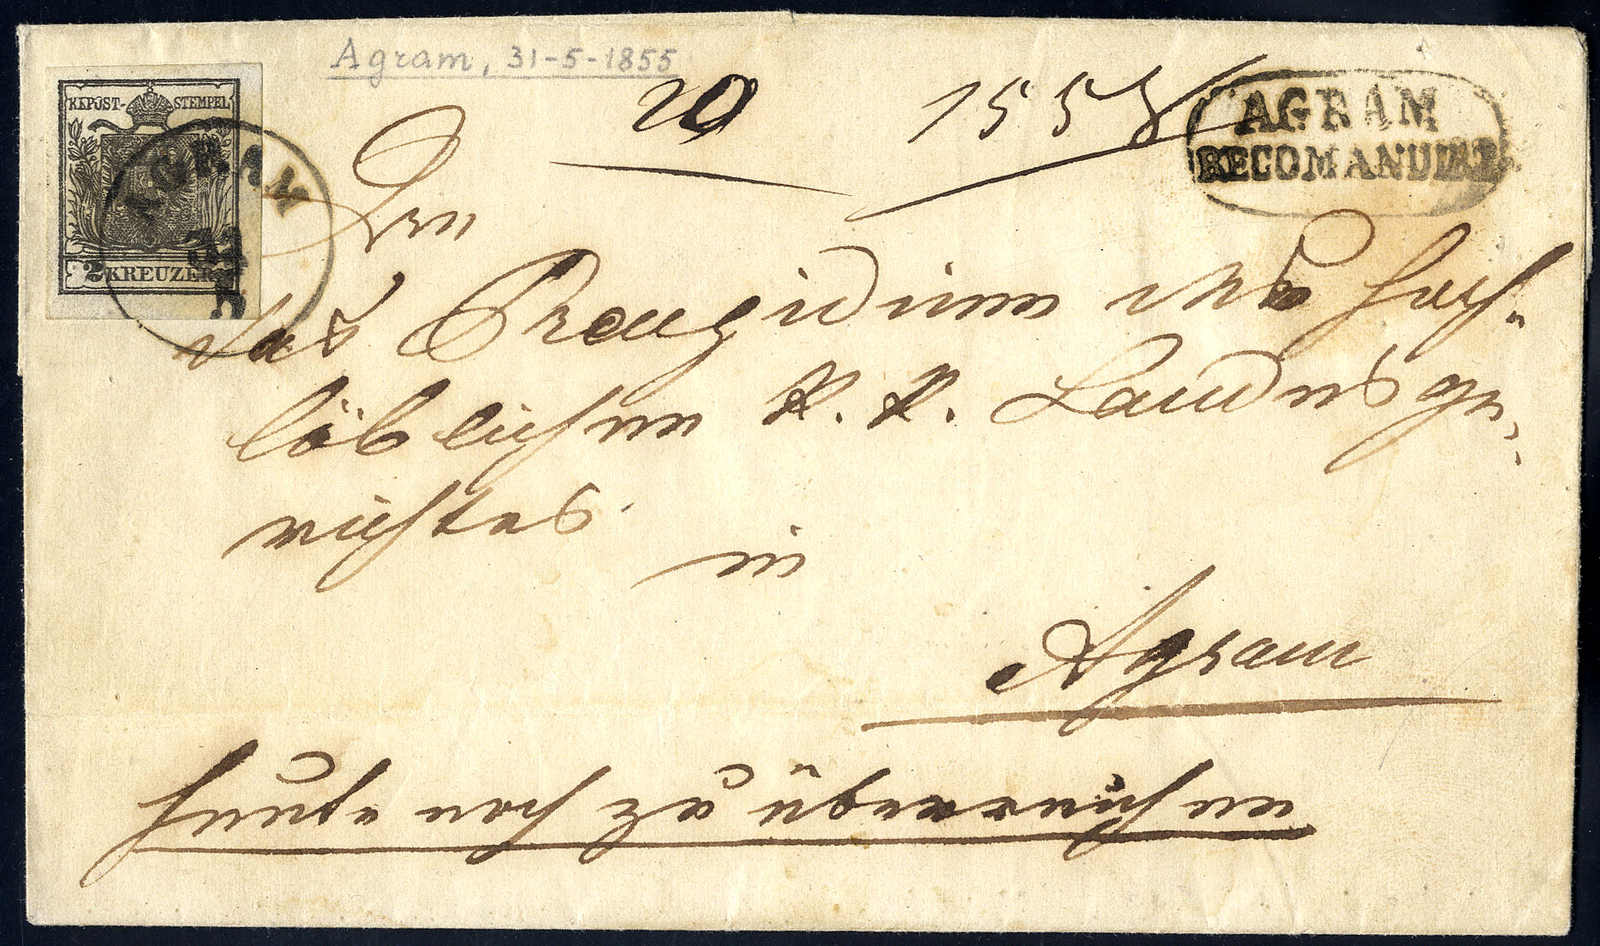 Agram, 31-5-1855
KKPOST-STEMPEL
2 KREUZER
AGRAM
31
5
AGRAM
RECOMANDIRT
An
das Praesidium des hoch-
löblichen K. K. Landesge-
richtes
in
Agram
heute noch zu überreichen